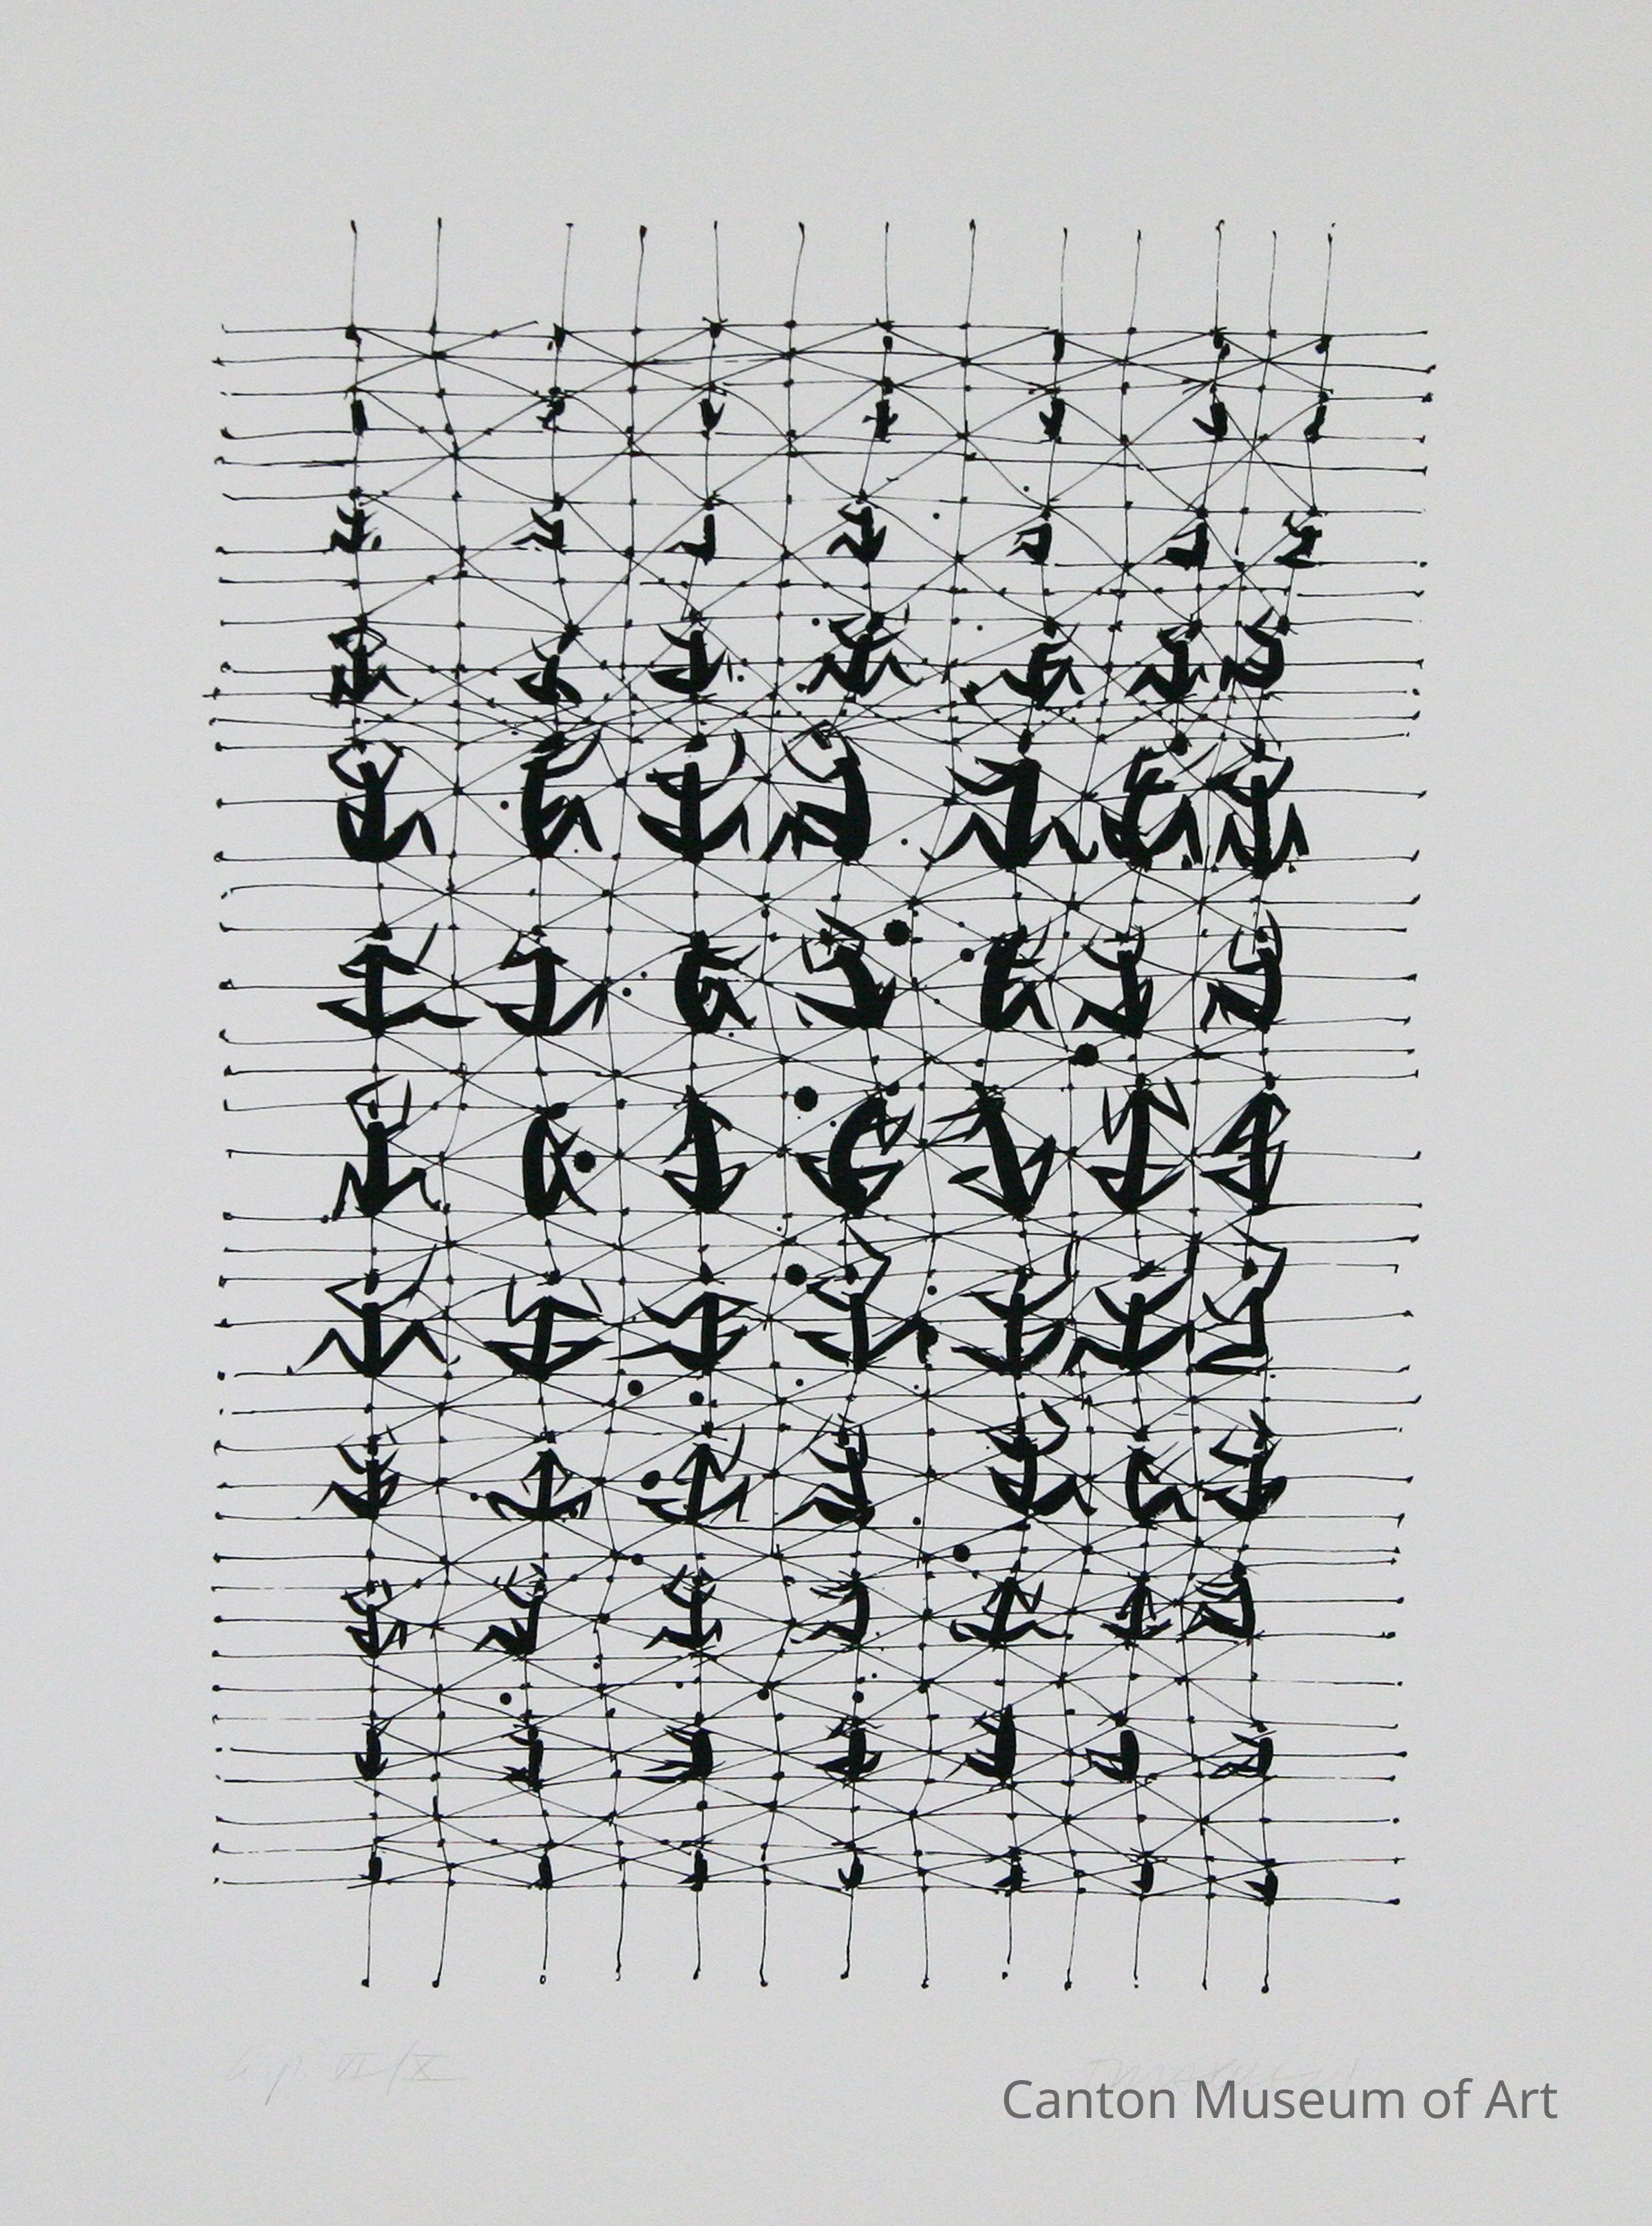 a.p. VI/X
Canton Museum of Art